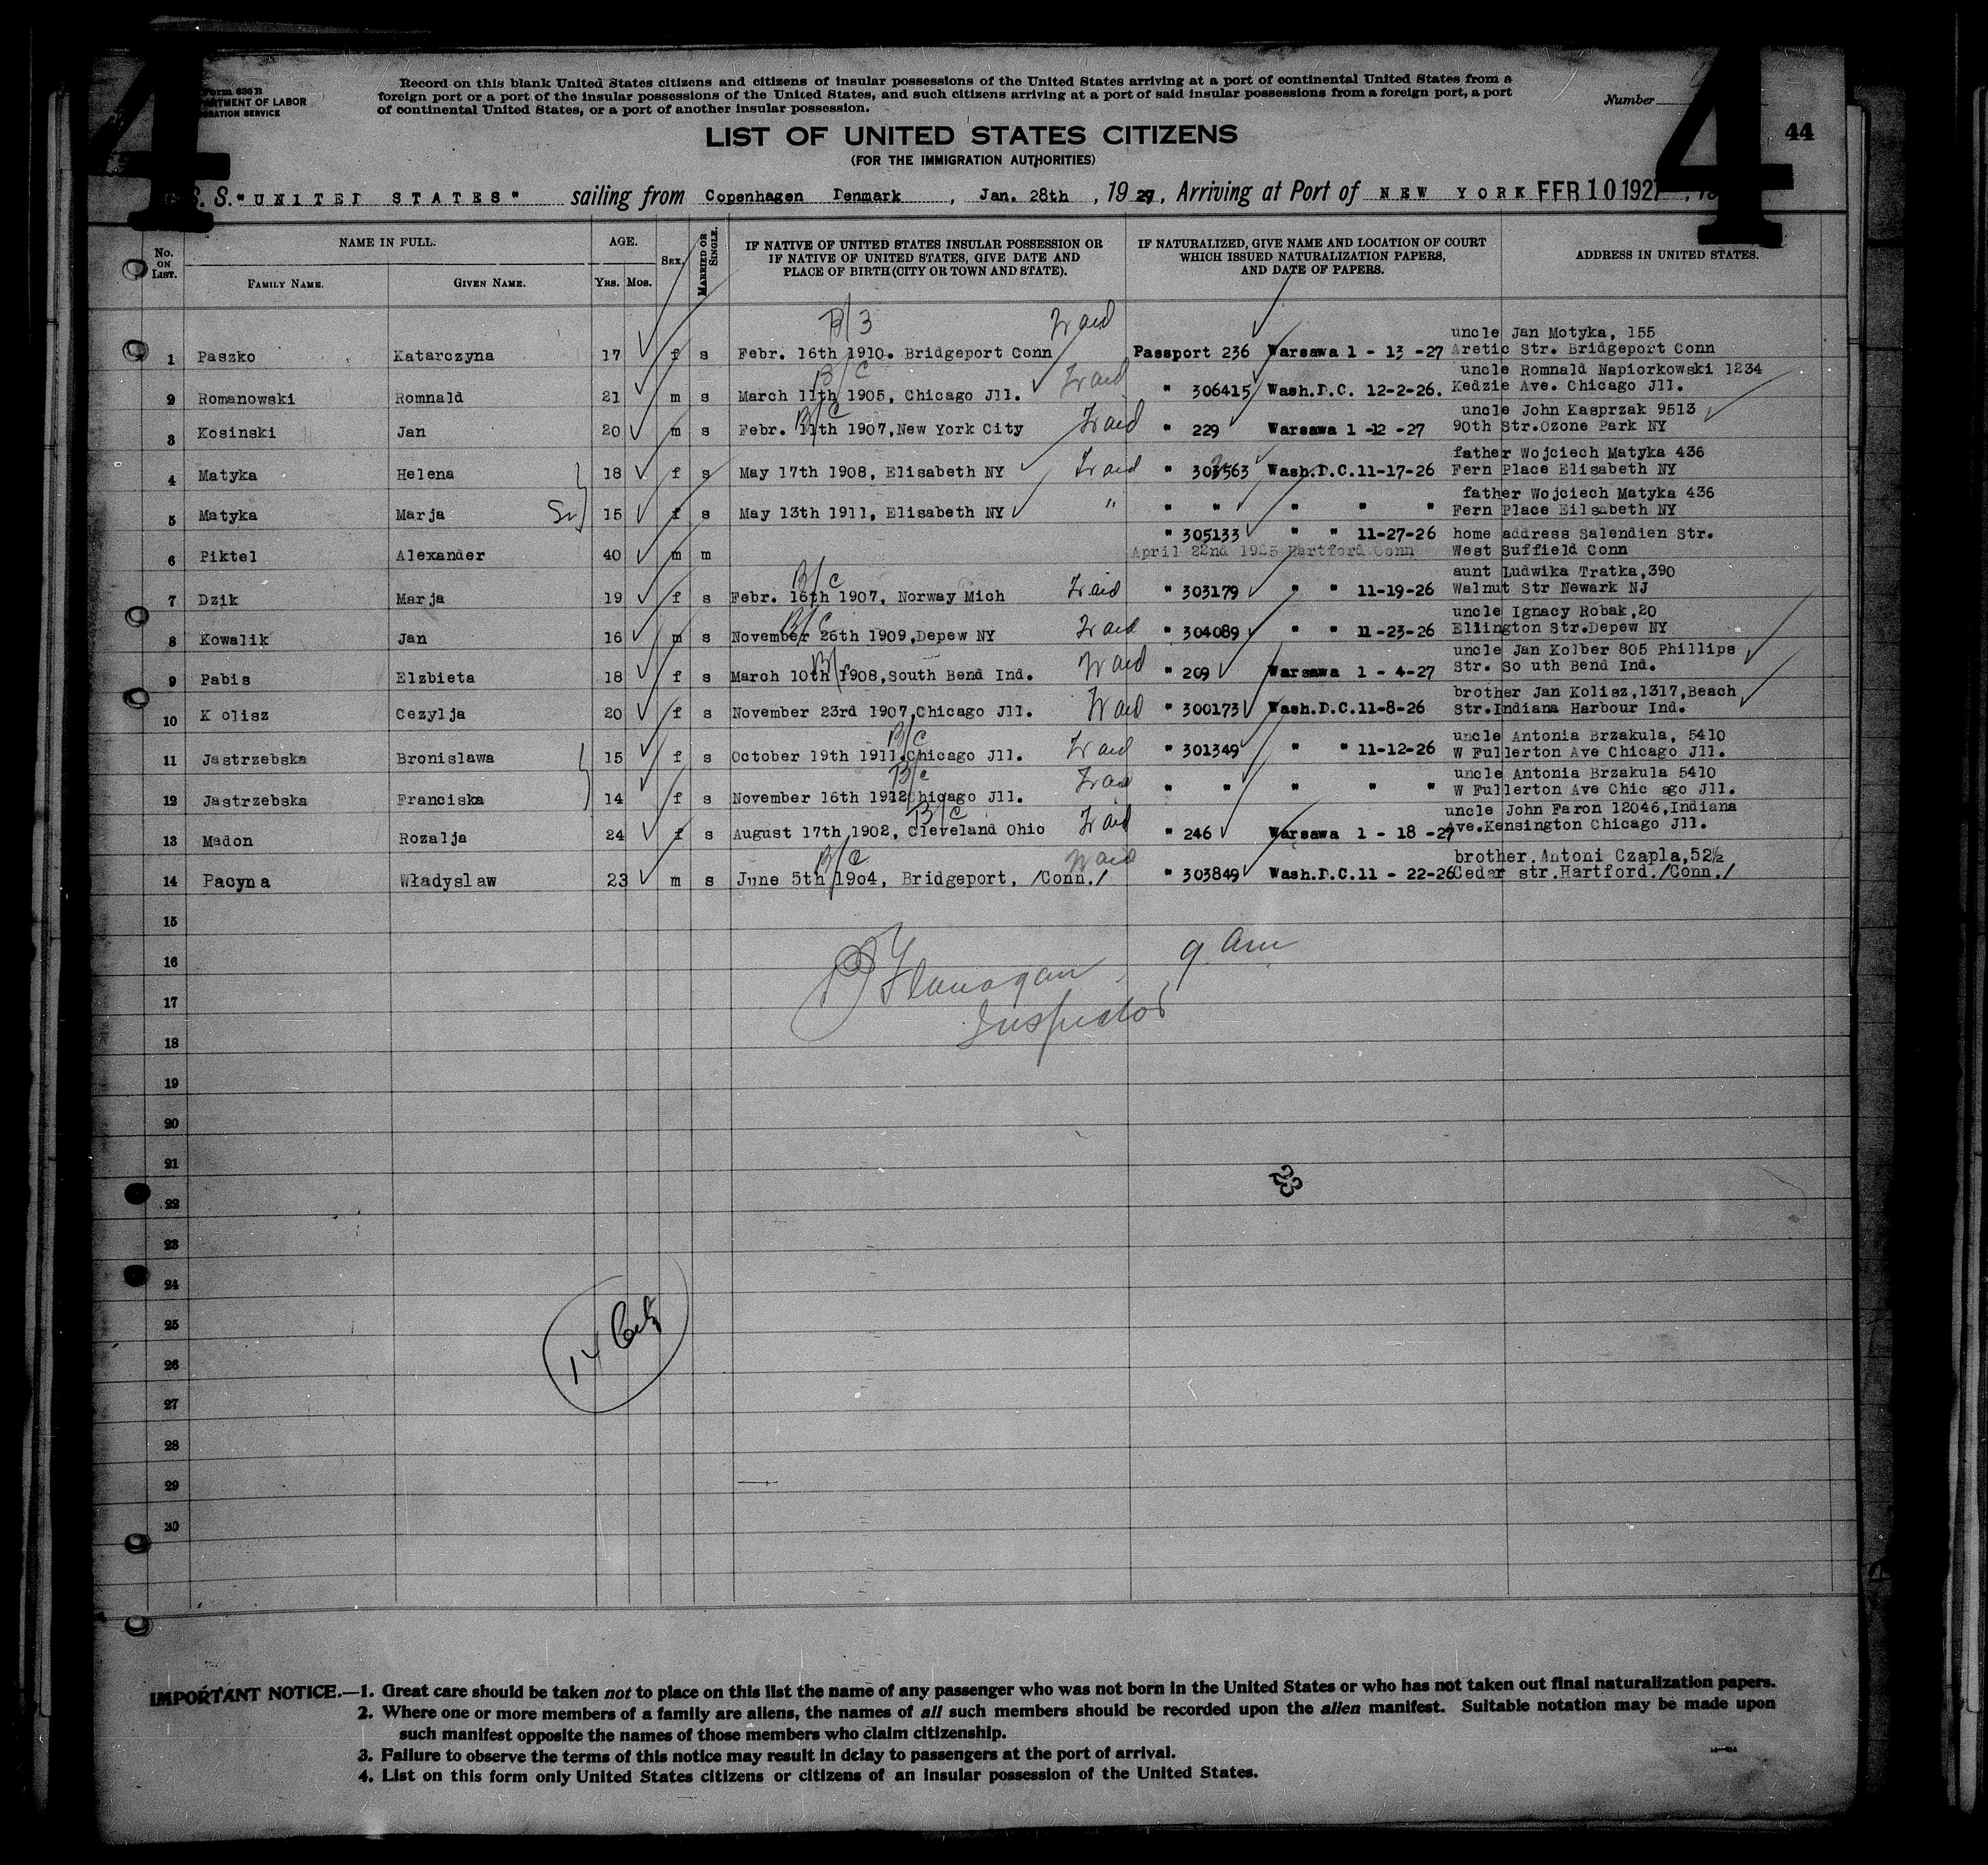 4
4
Form 630 B
DEPARTMENT OF LABOR
IMMIGRATION SERVICE
Record on this blank United States citizens and citizens of insular possessions of the United States arriving at a port of continental United States from a
foreign port or a port of the insular possessions of the United States, and such citizens arriving at a port of said insular possessions from a foreign port, a port
of continental United States, or a port of another insular possession.
Number
44
LIST OF UNITED STATES CITIZENS
(FOR THE IMMIGRATION AUTHORITIES)
S. S. "UNITED STATES" sailing from Copenhagen Denmark, Jan. 28th, 1927, Arriving at Port of NEW YORK FEB 10 1927
No. ON LIST. NAME IN FULL. FAMILY NAME. GIVEN NAME. AGE. YRS. MOS. SEX. MARRIED OR SINGLE. IF NATIVE OF UNITED STATES INSULAR POSSESSION OR IF NATIVE OF UNITED STATES, GIVE DATE AND PLACE OF BIRTH (CITY OR TOWN AND STATE). IF NATURALIZED, GIVE NAME AND LOCATION OF COURT WHICH ISSUED NATURALIZATION PAPERS, AND DATE OF PAPERS. ADDRESS IN UNITED STATES.
uncle Jan Motyka, 155
1 Paszko Katarczyna 17 f s Febr. 16th 1910. Bridgeport Conn Passport 236 Warsawa 1 - 13 -27 Aretic Str. Bridgeport Conn
B/C uncle Romnald Napiorkowski 1234
2 Romanowski Romnald 21 m s March 11th 1905, Chicago Jll. " 306415 Wash.D.C. 12-2-26. Kedzie Ave. Chicago Jll.
B/C uncle John Kasprzak 9513
3 Kosinski Jan 20 m s Febr. 11th 1907,New York City " 229 Warsawa 1 -12 -27 90th Str.Ozone Park NY
father Wojciech Matyka 436
4 Matyka Helena 18 f s May 17th 1908, Elisabeth NY " 303563 Wash.D.C.11-17-26 Fern Place Elisabeth NY
father Wojciech Matyka 436
5 Matyka Marja 15 f s May 13th 1911, Elisabeth NY " " " " " " Fern Place Eilsabeth NY
" 305133 " " 11-27-26 home address Salendien Str.
6 Piktel Alexander 40 m m April 22nd 1925 Hartford Conn West Suffield Conn
B/C aunt Ludwika Tratka,390
7 Dzik Marja 19 f s Febr. 16th 1907, Norway Mich " 303179 " " 11-19-26 Walnut Str Newark NJ
B/C uncle Ignacy Robak,20
8 Kowalik Jan 16 m s November 25th 1909,Depew NY " 304089 " " 11-23-26 Ellington Str.Depew NY
uncle Jan Kolber 805 Phillips
9 Pabis Elzbieta 18 f s March 10th 1908,South Bend Ind. " 209 Warsawa 1 - 4-27 Str. So uth Bend Ind.
brother Jan Kolisz,1317,Beach
10 K olisz Cezylja 20 f s November 23rd 1907,Chicago Jll. " 300173 Wash.D.C.11-8-26 Str.Indiana Harbour Ind.
B/C uncle Antonia Brzakula, 5410
11 Jastrzebska Bronislawa 15 f s October 19th 1911.Chicago Jll. " 301349 " " 11-12-26 W Fullerton Ave Chicago Jll.
B/C uncle Antonia Brzakula 5410
12 Jastrzebska Franciska 14 f s November 16th 1912Chicago Jll. " " " " " W Fullerton Ave Chic ago Jll.
B/C uncle John Faron 12046,Indiana
13 Madon Rozalja 24 f s August 17th 1902, Cleveland Ohio " 246 Warsawa 1 - 18 -27 Ave.Kensington Chicago Jll.
B/C brother. Antoni Czapla,52½
14 Pacyna Władyslaw 23 m s June 5th 1904, Bridgeport, /Conn./ " 303849 Wash.D.C.11 - 22-26 Cedar str.Hartford./Conn./
15
16 Flanagan 9 am
17 Inspector
18
19
20
21
22
23
23
24
25
26
27
28
29
30
IMPORTANT NOTICE.—1. Great care should be taken not to place on this list the name of any passenger who was not born in the United States or who has not taken out final naturalization papers.
2. Where one or more members of a family are aliens, the names of all such members should be recorded upon the alien manifest. Suitable notation may be made upon
such manifest opposite the names of those members who claim citizenship.
3. Failure to observe the terms of this notice may result in delay to passengers at the port of arrival.
4. List on this form only United States citizens or citizens of an insular possession of the United States.